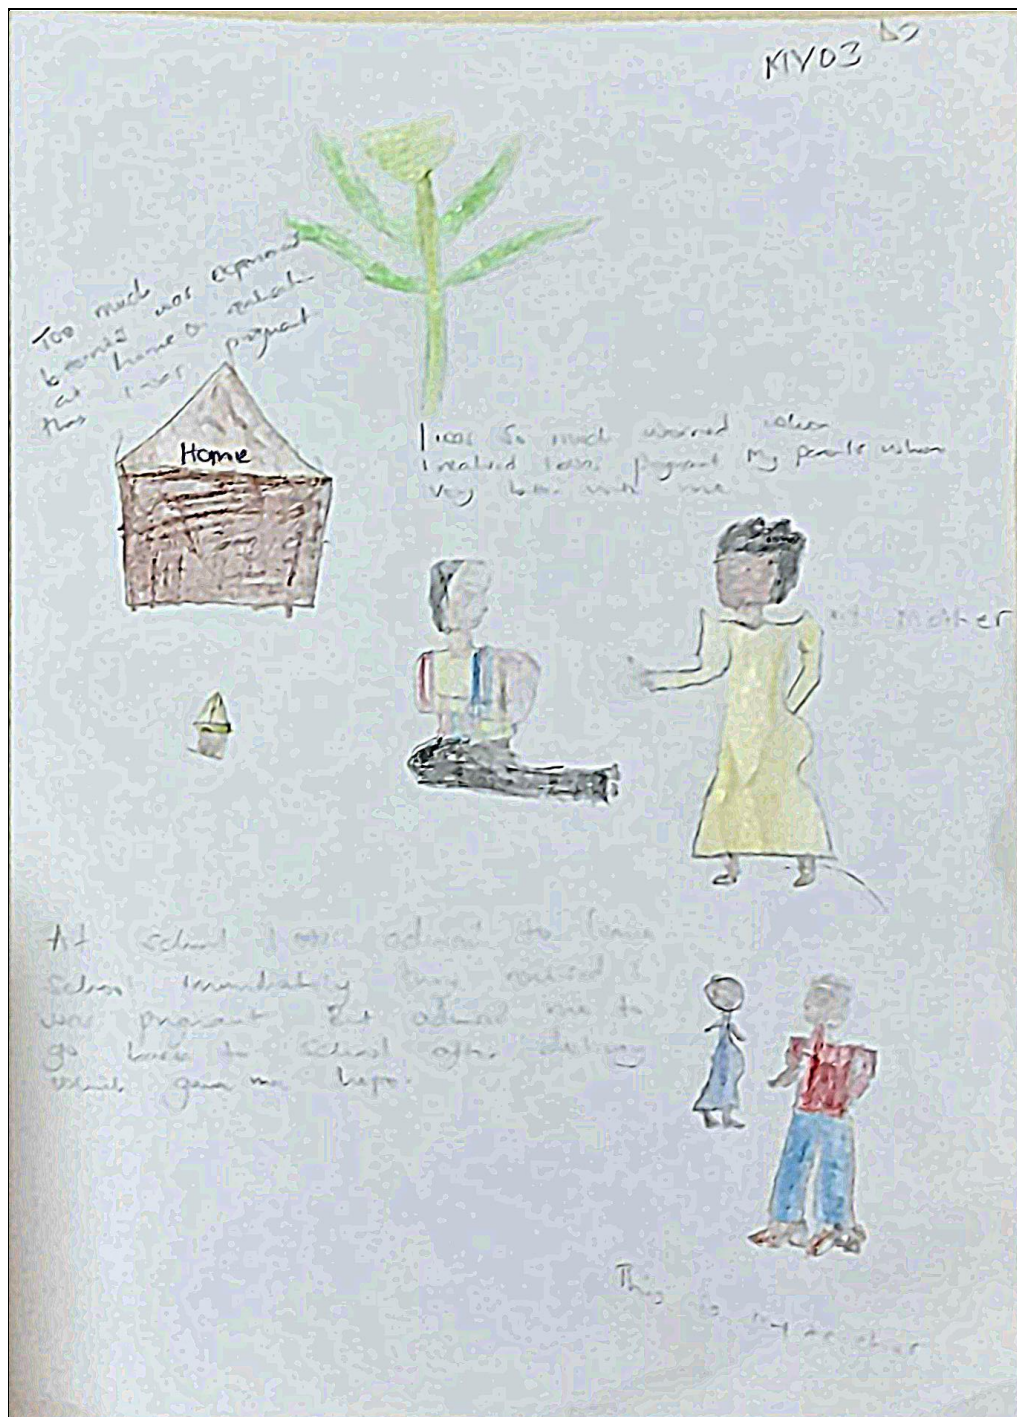 KIV03
Too much
was experienced
at home
pregnant
Home
I was so much worried when
I realised I was pregnant My parents when
very bitter with me
mother
At school I was advised to leave
school immediately they noticed I
was pregnant But advised me to
go back to school after delivery
which gave me hope.
This is my teacher